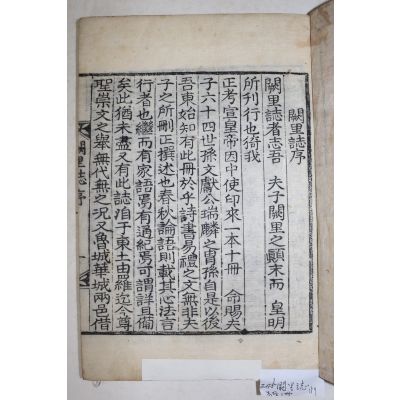 闕里誌序
闕里誌者志吾 夫子闕里之顚末而 皇明
所刊行也猗我
正考宣皇帝因中使印來一本十冊 命賜夫
子六十四世孫文獻公瑞麟之胄孫自是以後
吾東始知有此冊於乎詩書易禮之文無非夫
子之所刪正撰述也春秋論語則載其心法言
行者也繼而有家語焉有通紀焉可謂詳且備
矣此猶未盡又有此誌洎于東土由羅迄今尊
聖崇文之擧無代無之况又魯城華城兩邑借
闕里誌序
闕里誌